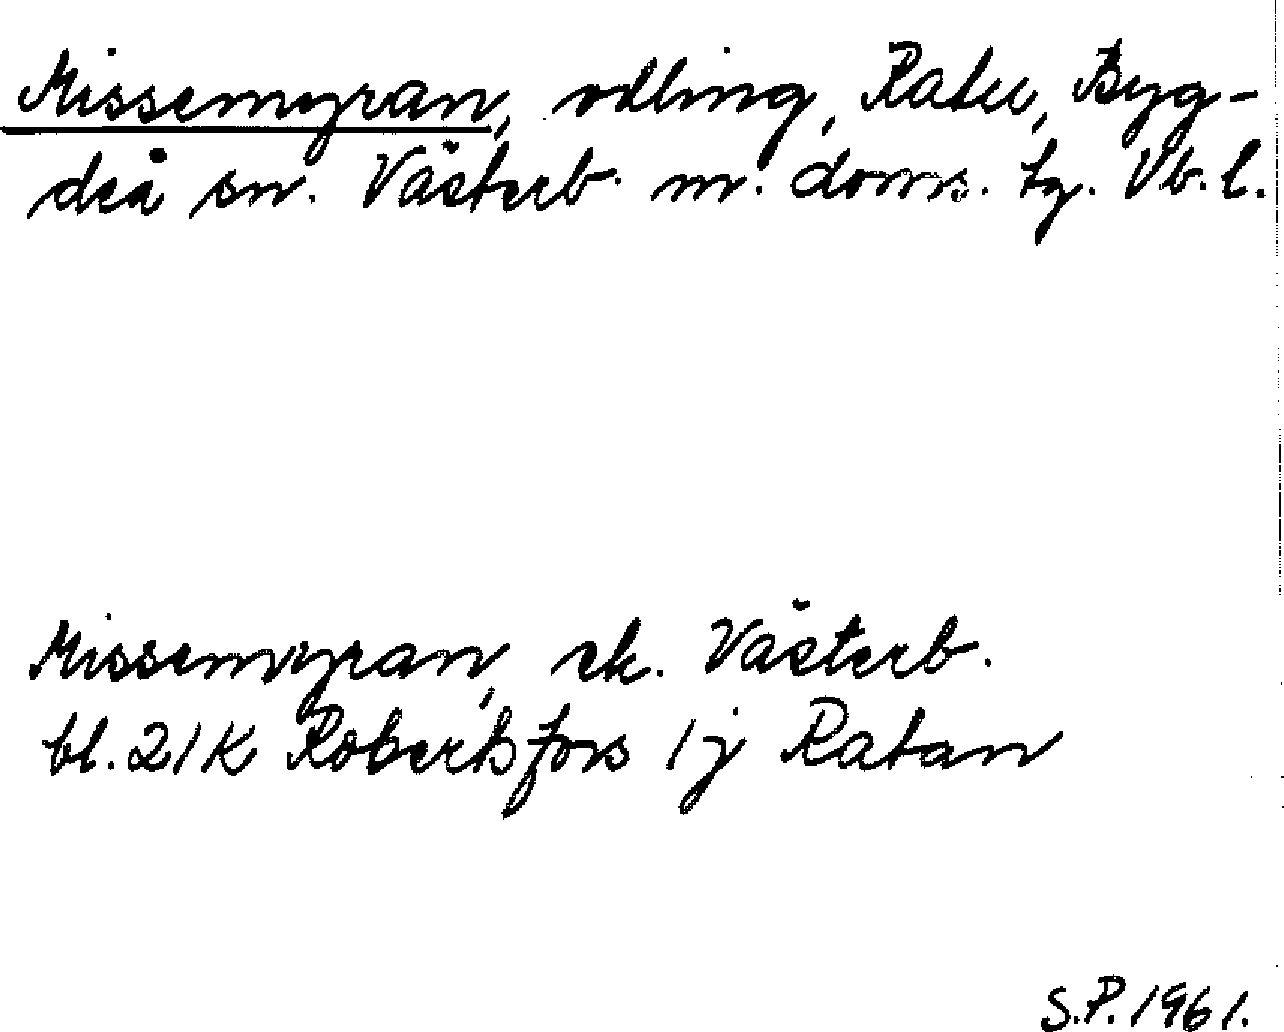 Missemyran, odling, Ratu, Byg-
deå sn. Västerb. m. doms. tg. Vb. l.
Missemyran, ek. Västerb.
bl. 21K Robertsfors 1j Ratan
S.P. 1961.